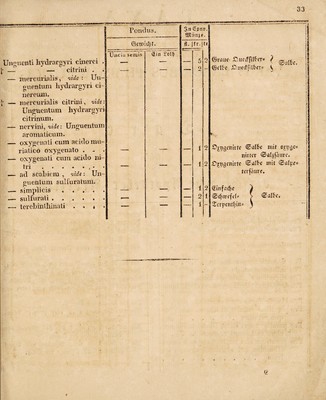 33
Pondus.
In Conv. Münze.
Gewicht.
fl. kr. ₰
Uncia semis
Ein Loth
Unguenti hydrargyri cinerei . — — — 5 2 Graue Quecksilber- } Salbe.
— — citrini . . — — — 2 — Gelbe Quecksilber- }
— mercurialis, vide: Un-
guentum hydrargyri ci-
nereum.
— mercurialis citrini, vide:
Unguentum hydrargyri
citrinum.
— nervini, vide: Unguentum
aromaticum.
— oxygenati cum acido mu-
riatico oxygenato . . . — — — 1 2 Oxygenirte Salbe mit oxyge-
nirter Salzsäure.
— oxygenati cum acido ni-
tri . . . . . . — — — 1 2 Oxygenirte Salbe mit Salpe-
tersäure.
— ad scabiem, vide: Un-
guentum sulfuratum.
— simplicis . . . . . — — — 1 2 Einfache }
— sulfurati . . . . . — — — 2 1 Schwefel- } Salbe.
— terebinthinati . . . . — — — 1 — Terpenthin- }
9